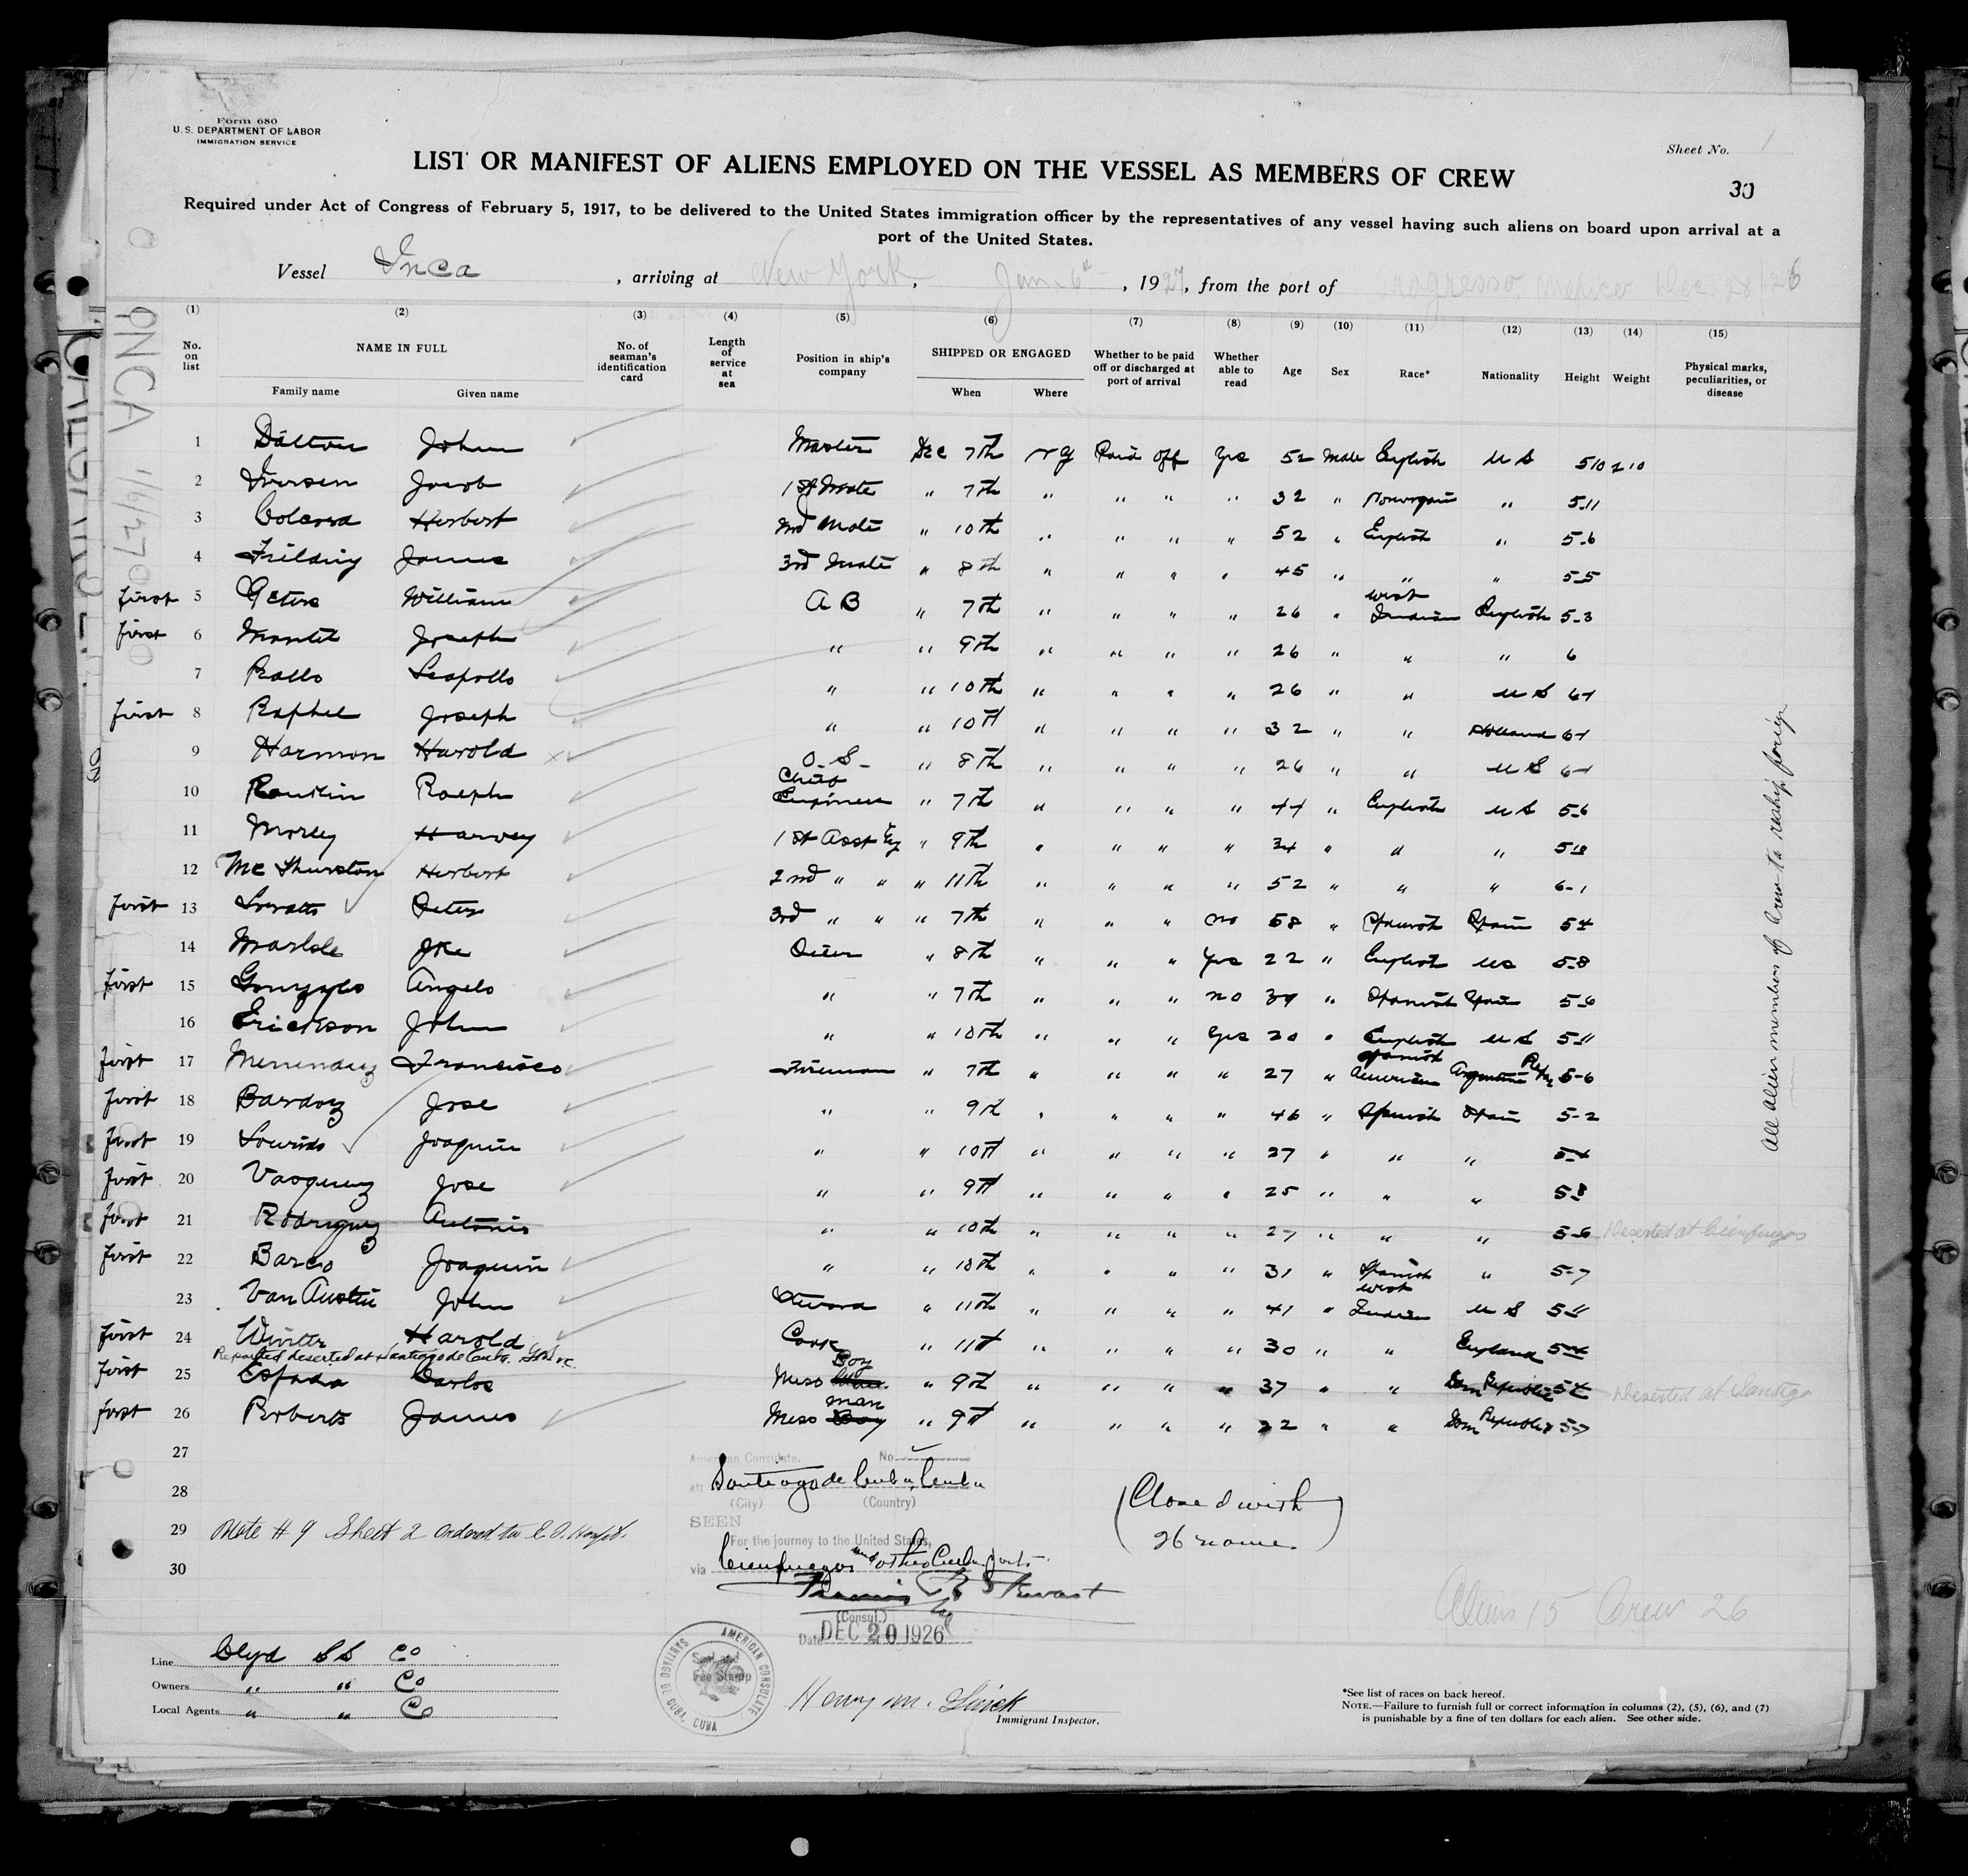 Form 680
U. S. DEPARTMENT OF LABOR
IMMIGRATION SERVICE
Sheet No. 1
LIST OR MANIFEST OF ALIENS EMPLOYED ON THE VESSEL AS MEMBERS OF CREW
30
Required under Act of Congress of February 5, 1917, to be delivered to the United States immigration officer by the representatives of any vessel having such aliens on board upon arrival at a
port of the United States.
Vessel Inca, arriving at New York, Jan 6th, 1927, from the port of Progreso, Mexico Dec. 28/26
(1) (2) (3) (4) (5) (6) (7) (8) (9) (10) (11) (12) (13) (14) (15)
No. on list NAME IN FULL No. of seaman's identification card Length of service at sea Position in ship's company SHIPPED OR ENGAGED Whether to be paid off or discharged at port of arrival Whether able to read Age Sex Race* Nationality Height Weight Physical marks, peculiarities, or disease
Family name Given name When Where
1 Dalton John Master Dec 7th NY Paid off Yes 52 Male English U S 5 10 210
2 Iversen Jacob 1st Mate " 7th " " " " 32 " " 5-11
3 Herbert 2nd Mate " 10th " " " " 52 " English " 5-6
4 Fielding James 3rd Mate " 8th " " " " 45 " " " 5-5
first 5 Peters William A B " 7th " " " " 26 " West Indian English 5-3
first 6 Joseph " " 9th " " " " 26 " " " 6
7 Rallo " " 10th " " " " 26 " " U S 6-1
first 8 Raphel Joseph " " 10th " " " " 32 " " Holland 6-1
9 Harmon Harold O. S. " 8th " " " " 26 " " U S 6-1
10 Ralph Chief Engineer " 7th " " " " 44 " English U S 5-6
11 Morley Harvey 1st Asst Eng " 9th " " " " 34 " " "
12 Mc Thurston Herbert 2nd " " " 11th " " " " 52 " " " 6-1
first 13 Peter 3rd " " " 7th " " " no 58 " Spanish Spain 5-4
14 Joe Oiler " 8th " " " Yes 22 " English US 5-8
first 15 Gonzales Angelo " " 7th " " " no 39 " Spanish Spain 5-6
16 Erickson John " " 10th " " " Yes 20 " English U S 5-11
first 17 Menendez Francisco Fireman " 7th " " " " 27 " Spanish American Argentine Rep. 5-6
first 18 Jose " " 9th " " " " 46 " Spanish Spain 5-2
first 19 Joaquin " " 10th " " " " 27 " " " 5-4
first 20 Vasquez Jose " " 9th " " " " 25 " " " 5-8
first 21 Rodriguez Antonio " " 10th " " " " 27 " " " 5-6 Deserted at Cienfuegos
first 22 Barco Joaquin " " 10th " " " " 31 " Spanish " 5-7
23 Van Austin John Steward " 11th " " " " 41 " West Indian U S 5-11
first 24 Harold Cook " 11th " " " " 30 " " England
Reported deserted at Santiago de Cuba.
first 25 Espada Carlos Mess Boy " 9th " " " " 37 " " Dom Republic Deserted at Santiago
first 26 Roberts James Mess man Boy " 9th " " " " 22 " " Dom Republic 5-7
27
28
29 Note # 9 Sheet 2 ordered to E. I. Hospt.
30
All alien members of Crew to reship foreign
American Consulate. No.
at Santiago de Cuba, Cuba
(City) (Country)
SEEN
For the journey to the United States,
via Cienfuegos and other Cuban ports
(Consul.)
Date DEC 20 1926
(Closed with
26 names)
Aliens 15 Crew 26
Line Clyd S S Co
Owners " " Co
Local Agents " " Co
AMERICAN CONSULATE
SANTIAGO DE CUBA, CUBA
Seal and
Fee Stamp
Henry M.
Immigrant Inspector.
*See list of races on back hereof.
NOTE.—Failure to furnish full or correct information in columns (2), (5), (6), and (7)
is punishable by a fine of ten dollars for each alien. See other side.